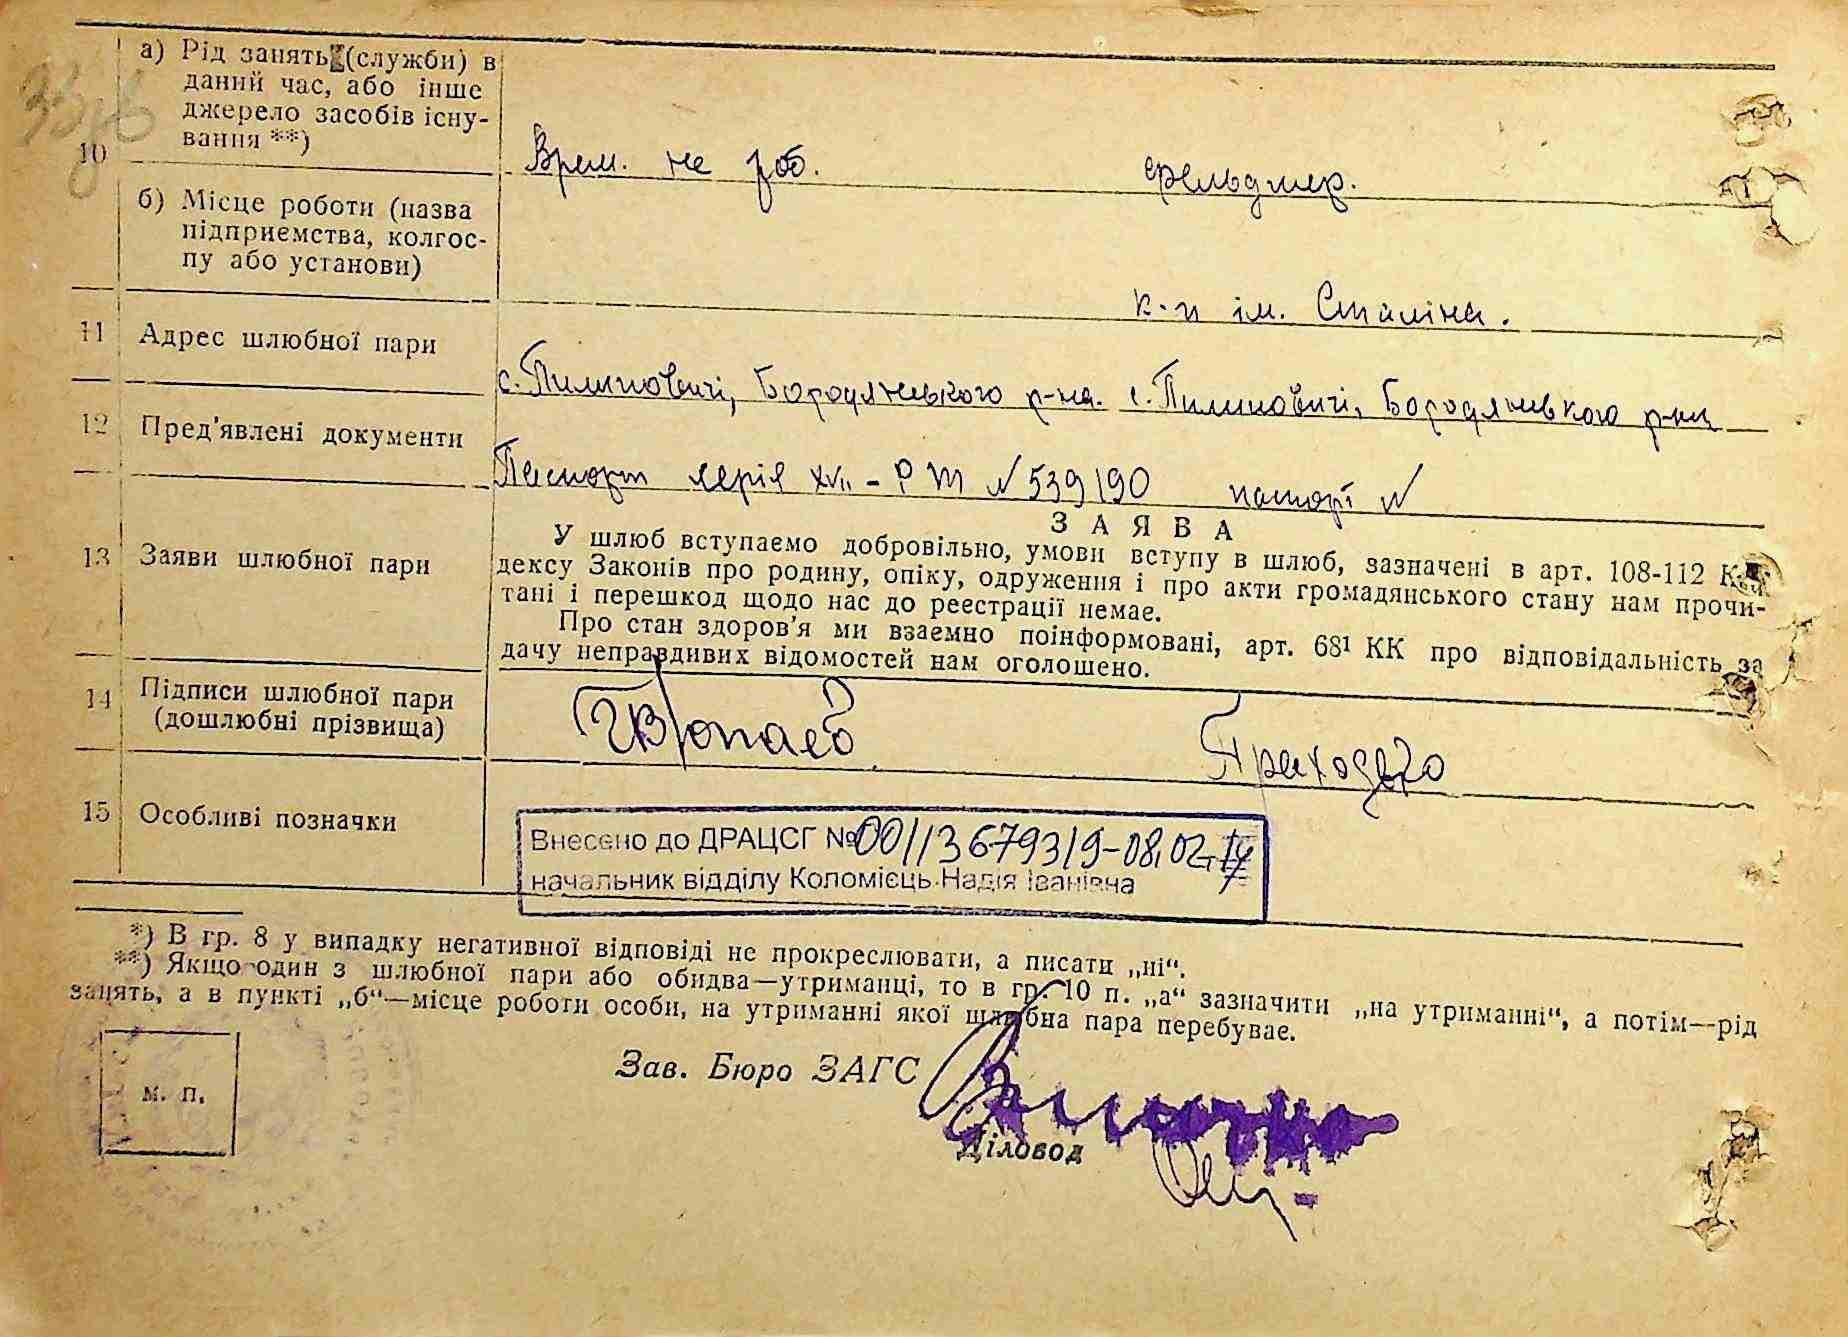 10
а) Рід занять (служби) в
даний час, або інше
джерело засобів існу-
вання **)
Врем. не роб. фельдшер.
б) Місце роботи (назва
підприємства, колгос-
пу або установи)
к-п ім. Сталіна.
11 Адрес шлюбної пари
с. Пилиповичі, Бородянського р-на. с. Пилиповичі, Бородянського р-на
12 Пред'явлені документи
Паспорт серія XVII - РМ № 539190 паспорт №
13 Заяви шлюбної пари
ЗАЯВА
У шлюб вступаємо добровільно, умови вступу в шлюб, зазначені в арт. 108-112 Ко-
дексу Законів про родину, опіку, одруження і про акти громадянського стану нам прочи-
тані і перешкод щодо нас до реєстрації немає.
Про стан здоров'я ми взаємно поінформовані, арт. 68¹ КК про відповідальність за
дачу неправдивих відомостей нам оголошено.
14 Підписи шлюбної пари
(дошлюбні прізвища)
Приходько
15 Особливі позначки
Внесено до ДРАЦСГ № 00113679319-08.02.
начальник відділу Коломієць Надія Іванівна
*) В гр. 8 у випадку негативної відповіді не прокреслювати, а писати „ні“.
**) Якщо один з шлюбної пари або обидва—утриманці, то в гр. 10 п. „а“ зазначити „на утриманні“, а потім—рід
занять, а в пункті „б“—місце роботи особи, на утриманні якої шлюбна пара перебуває.
Зав. Бюро ЗАГС
м. п.
Діловод